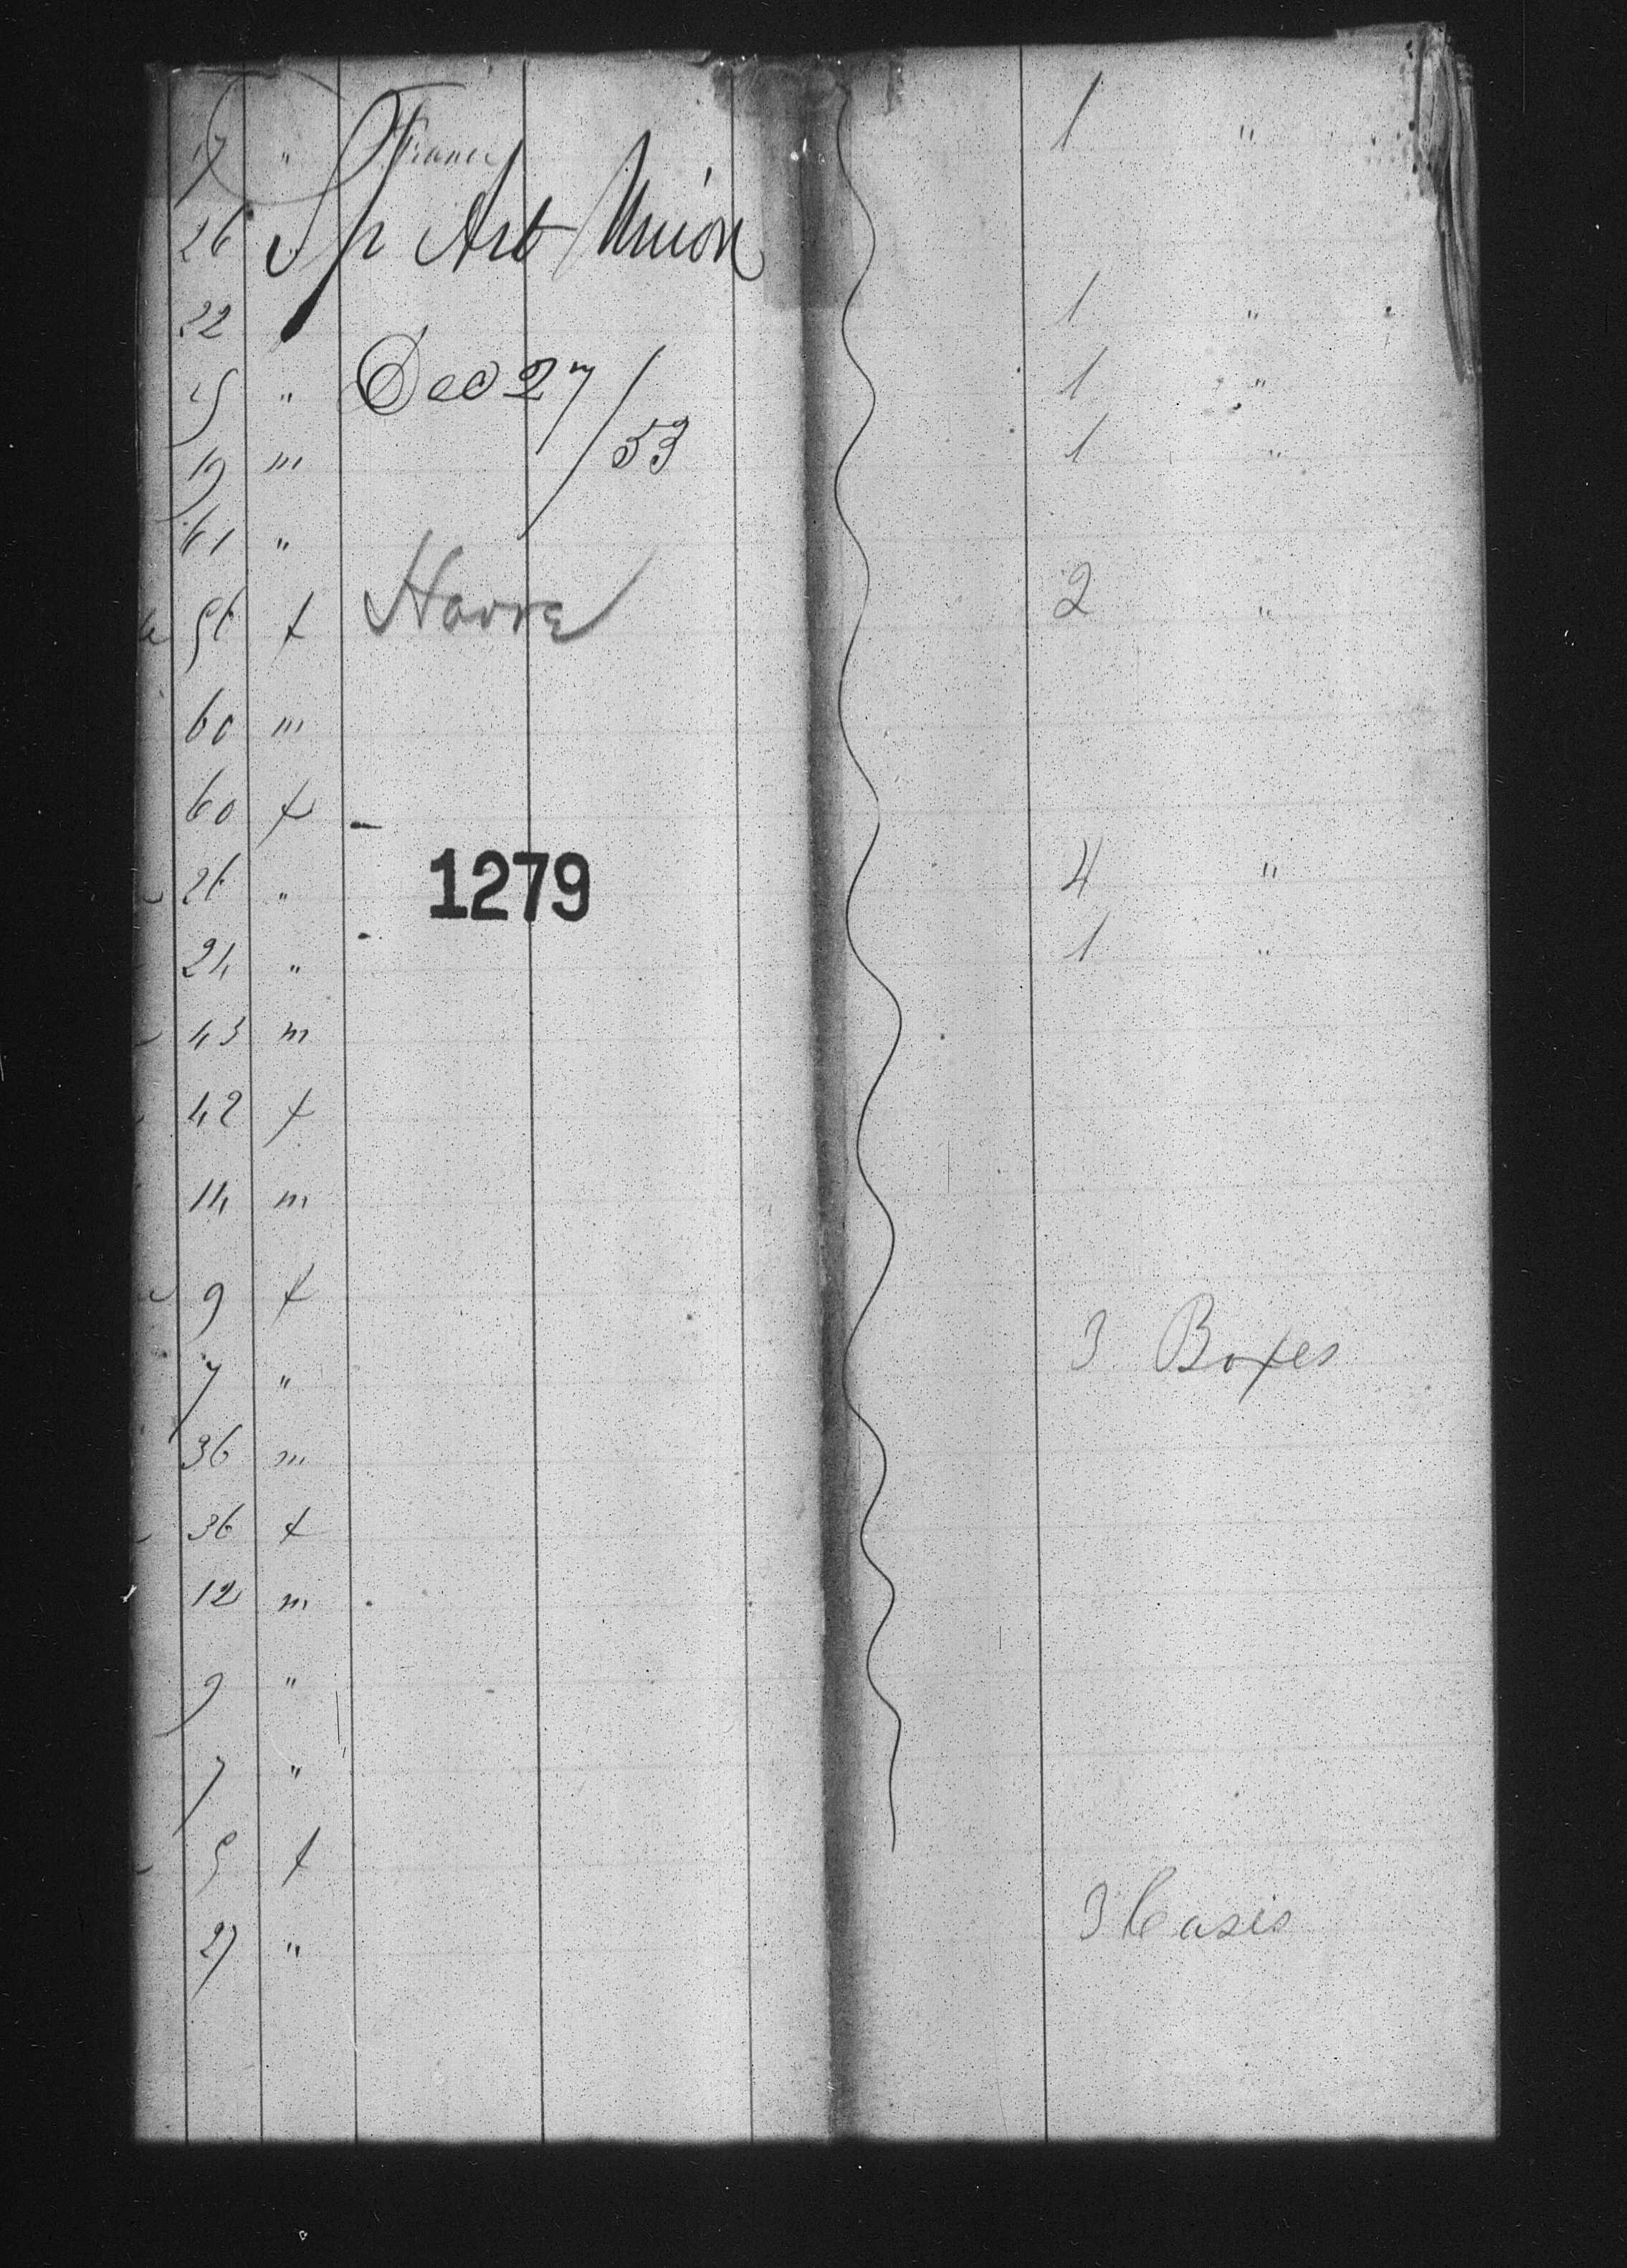 17 " France 1 "
26 Sp Art Union
22 " 1 "
25 " Dec 27/53 1 "
19 m 1 "
61 "
56 f Havre 2 "
60 m
60 f
26 " 1279 4 "
24 " 1 "
43 m
42 f
14 m
9 f
7 " 3 Boxes
36 m
36 f
12 m
9 "
7 "
5 f
27 " 3 Cases